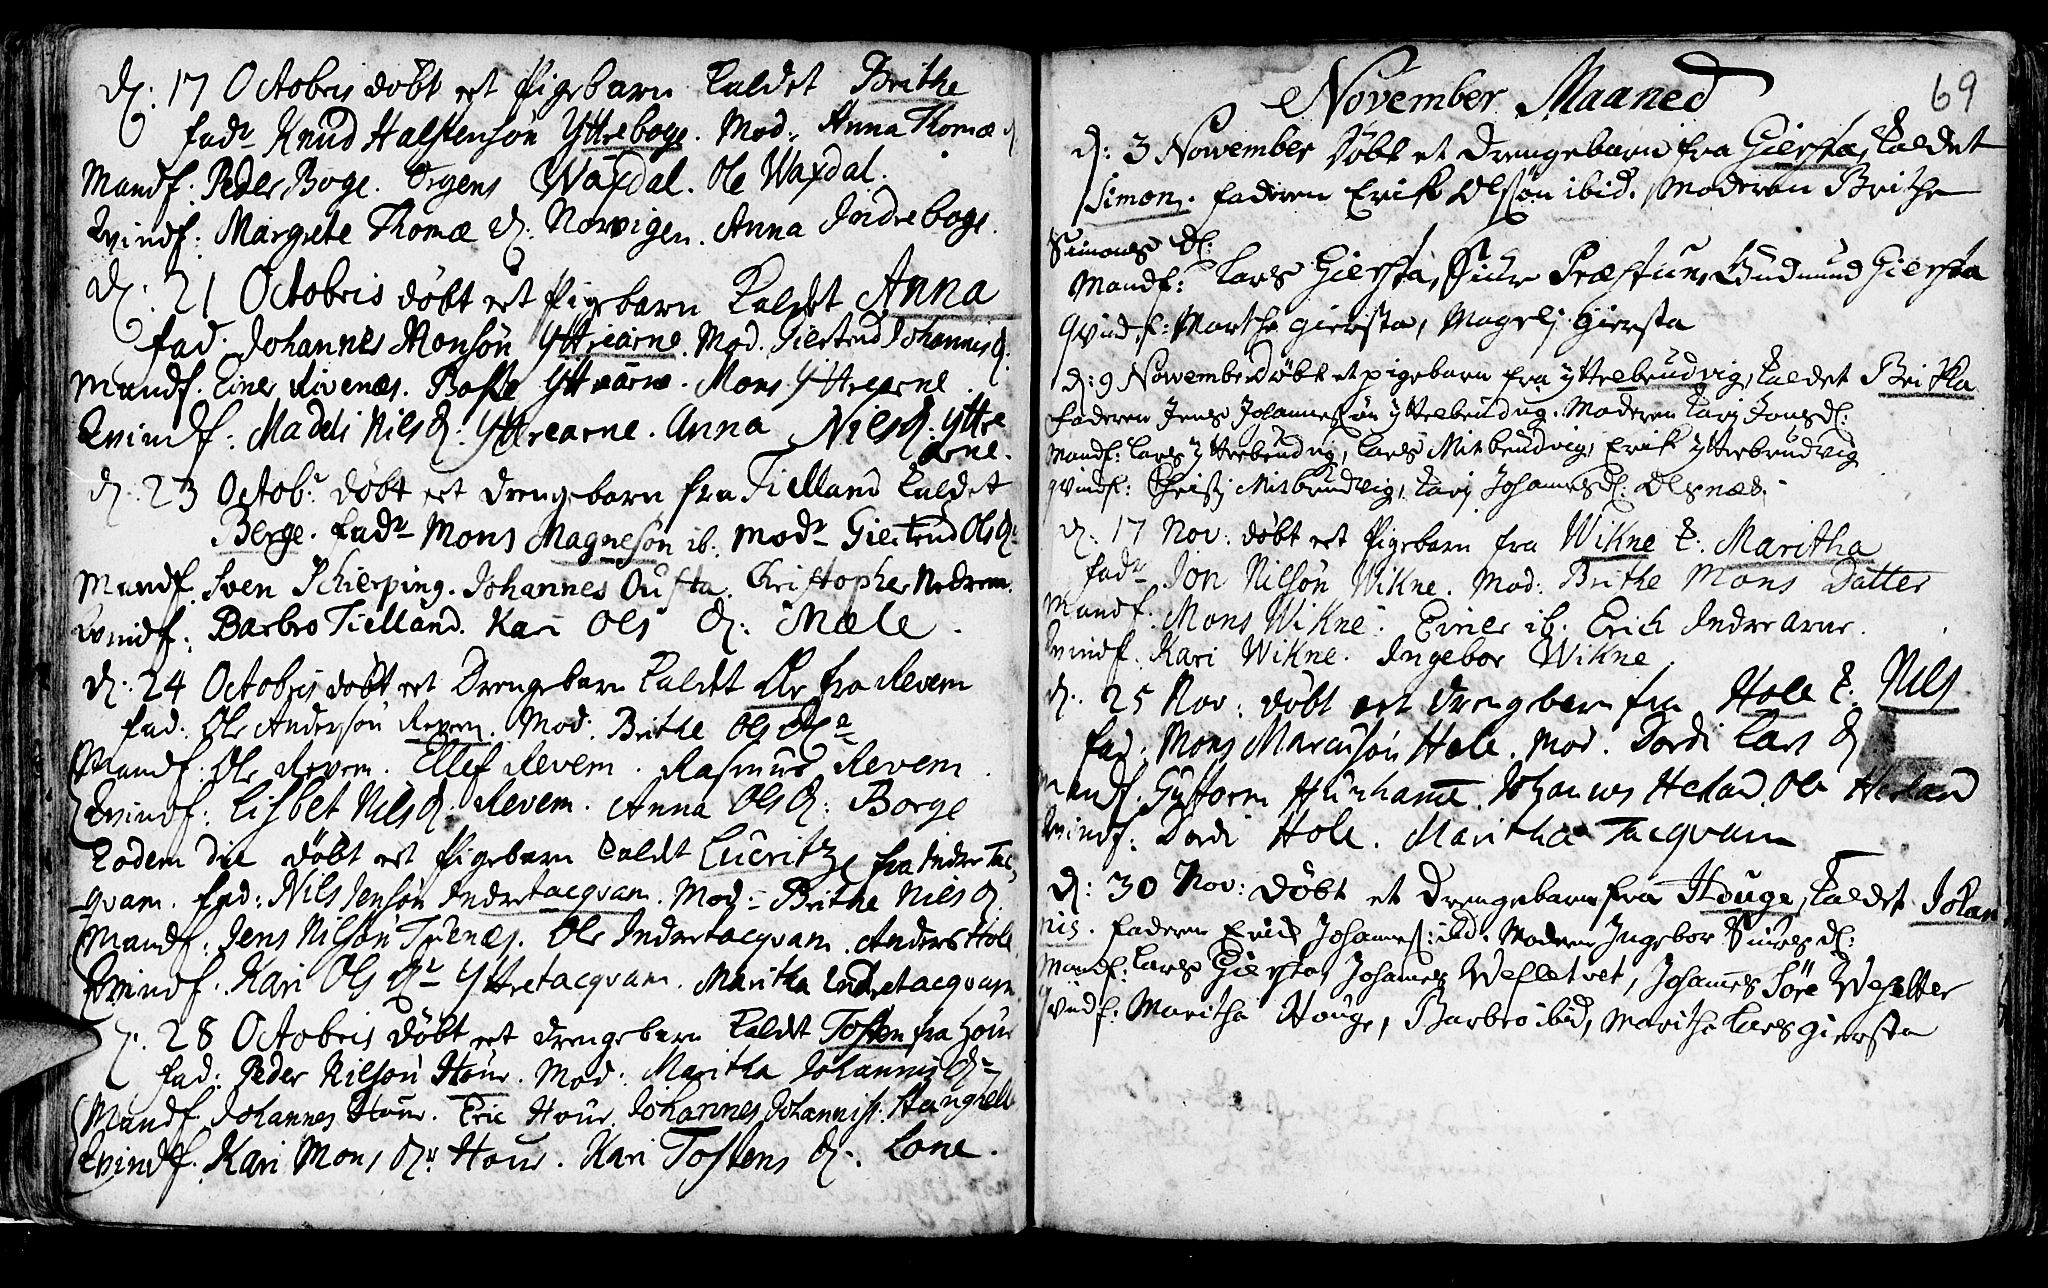 D: 17 Octobris døbt eet Pigebarn kaldet Brithe
fadr Knud Halstensøn Yttreboge. Mod: Anna Thomæ d
Mandf: Peder Boge. Örgens Waxdal. Ole Waxdal.
Qvindf: Margrete Thomæ D: Norvigen. Anna Indreboge.
D: 21 Octobris døbt eet Pigebarn kaldet Anna
fad. Johannes Monsøn Yttrearne. Mod. Giertrud Johannis D:
Mandf. Einer Rivenæs. Yttrearne. Mons Yttrearne.
Qvindf: Madeli Nils D: Yttrearne. Anna Nils D: Yttre
arne.
D. 23 Octobr døbt eet Drengebarn fra Tielland kaldet
Berge. fadr Mons Magnesøn ib. modr Giertrud Ols D:
Mandf. Sven Schierping. Johannes Ousta. Christopher Nedrem.
Qvindf: Barbro Tielland. Kari Ols D: Mæle.
D. 24 Octobris døbt eet Drengebarn kaldet Ole fra Revem
fad: Ole Andersøn Revem. Mod: Brithe Ols D:
Mandf: Ole Revem. Ellef Revem. Rasmus Revem.
Qvindf: Lisbet Nils D. Revem. Anna Ols D: Borge
Eodem die døbt eet Pigebarn kaldt Lucritze fra Indre Tac,
qvam. fad: Nils Jensøn Indretacqvam. Mod: Brithe Nils D.
Mandf: Jens Nilsøn Ole Indretacqvam. Anders Hole
Qvindf. Kari Ols Dr Yttretacqvam. Maritha Indretacqvam
D. 28 Octobris døbt eet Drengebarn kaldet Tosten fra Hour
fad: Peder Nilsøn Hour. Mod: Maritha Johannis D:
Mandf. Johannes Hour. Eric Hour. Johannes Johannis:
Qvindf. Kari Mons Dr Hour. Kari Tostens D. Lone.
69
November Maaned
D: 3 November døbt et Drengebarn fra Giersta, kaldet
Simon. faderen Erik Olsøn ibid. Moderen Brithe
Simons D:
Mandf: Lars Giersta, Siur Præstun, Gudmund Giersta
Qvindf: Marthe Giersta, Mageli Giersta
D: 9 November døbt et pigebarn fra yttrebrudvig, kaldet Britha
faderen Jens Johannessøn yttrebrudvig. Moderen Kari Jons D:
Mandf: Lars yttrebrudvig, Lars Mitbrudvig, Erik yttrebrudvig
qvindf: Christi Mitbrudvig, Kari Johannes D: Olsnæs.
D. 17 Nov: døbt eet Pigebarn fra Wikne k: Maritha
fadr Jon Nilsøn Wikne. Mod: Brithe Mons Datter
Mandf. Mons Wikne. Einer ib. Erich Indrearne.
Qvindf. Kari Wikne. Ingebor Wikne.
D. 25 Nov: døbt eet Drengebarn fra Hole k: Nils
fad: Mons Marcusøn Hole. Mod. Dordi Lars D
Mandf: Guttorm Johannes Heland. Ole Heland
Qvindf: Dordi Hole. Maritha Tacqvam
D: 30 Nov: døbt et Drengebarn fra Houge, kaldet Johan
nis. faderen Erich Johannes: ibid. Moderen Ingebor Siurs D:
Mandf: Lars Giersta, Johannes Wesletvet, Johannes Söre
Qvindf: Maritha Houge, Barbro ibid, Marithe Lars Giersta